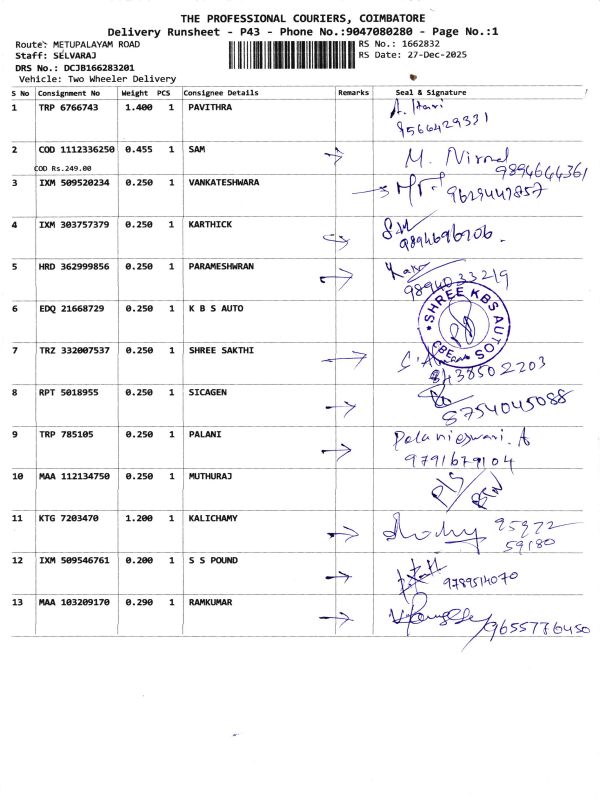 THE PROFESSIONAL COURIERS, COIMBATORE
Delivery Runsheet - P43 - Phone No.:9047080280 - Page No.:1
Route: METUPALAYAM ROAD RS No.: 1662832
Staff: SELVARAJ RS Date: 27-Dec-2025
DRS No.: DCJB166283201
Vehicle: Two Wheeler Delivery
S No Consignment No Weight PCS Consignee Details Remarks Seal & Signature
1 TRP 6766743 1.400 1 PAVITHRA A. Hari
9566429331
2 COD 1112336250 0.455 1 SAM M. Nirmal
9894644361
COD Rs.249.00
3 IXM 509520234 0.250 1 VANKATESHWARA
9629447857
4 IXM 303757379 0.250 1 KARTHICK
9894696206.
5 HRD 362999856 0.250 1 PARAMESHWRAN
9894033219
6 EDQ 21668729 0.250 1 K B S AUTO SHREE KBS AUTOS CBE
7 TRZ 332007537 0.250 1 SHREE SAKTHI
8438502203
8 RPT 5018955 0.250 1 SICAGEN
8754045088
9 TRP 785105 0.250 1 PALANI Palanieswari. A
9791679104
10 MAA 112134750 0.250 1 MUTHURAJ
11 KTG 7203470 1.200 1 KALICHAMY 95972
59180
12 IXM 509546761 0.200 1 S S POUND
9789514070
13 MAA 103209170 0.290 1 RAMKUMAR
9655776450